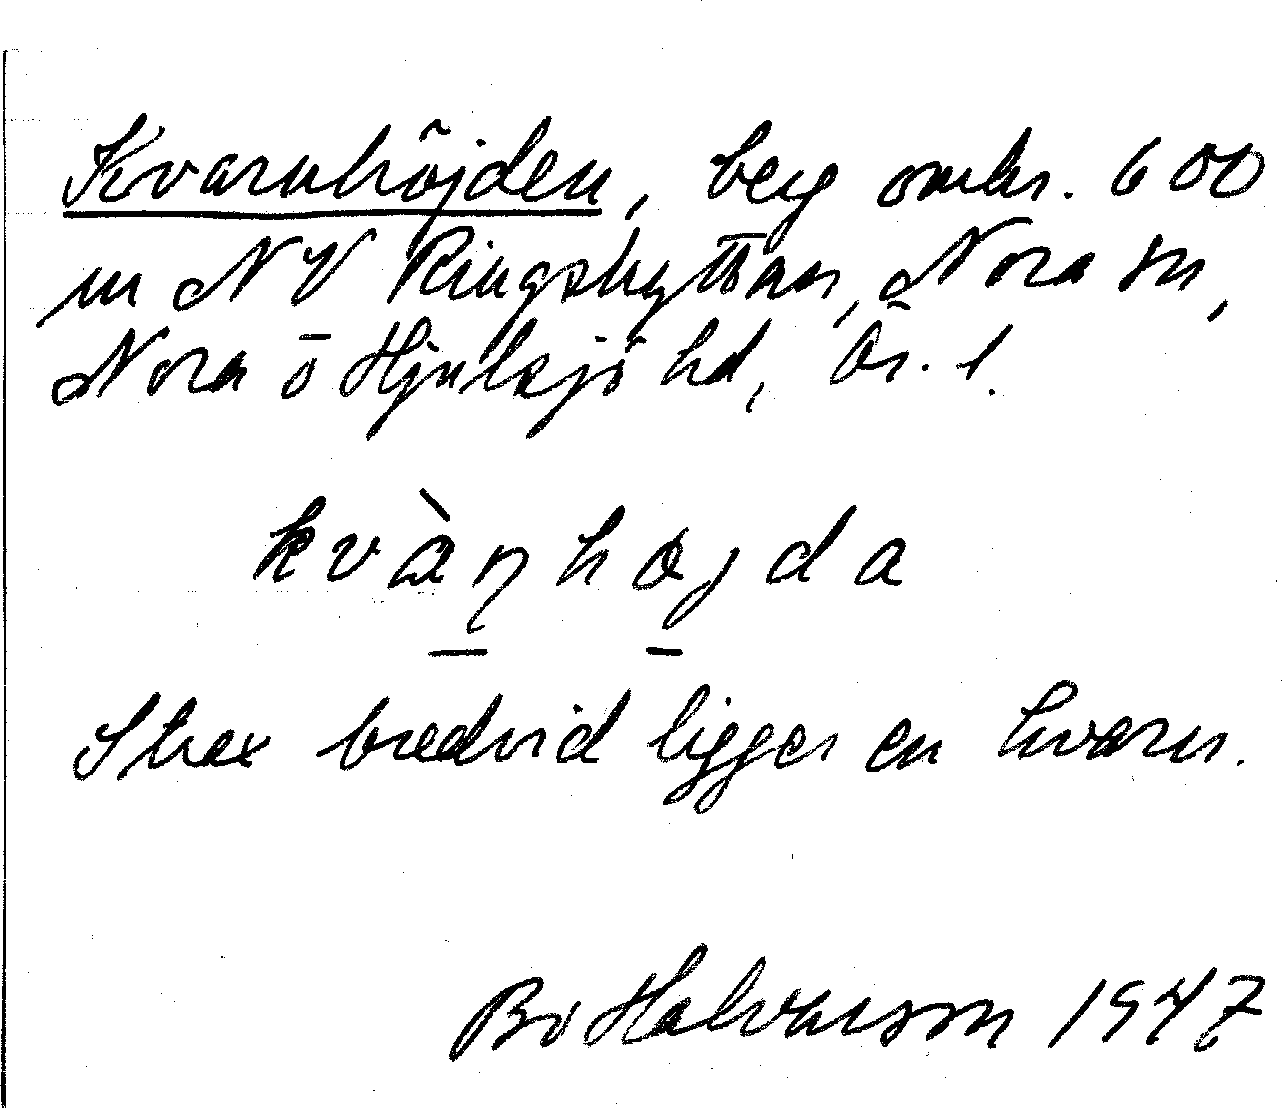 Kvarnhöjden, berg omkr. 600
m NV Ringshyttan, Nora sn,
Nora o Hjulsjö hd, Ör. l.
kvàṇhøjda
Strax bredvid ligger en kvarn.
Bo Halvarson 1947